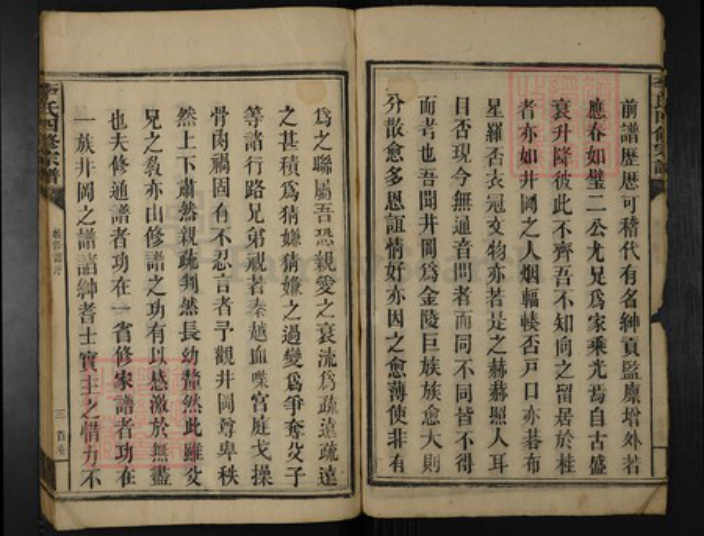 前譜歷歷可稽代有名紳貢監廩增外若
應春如璧二公尤足為家乘光焉自古盛
衰升降彼此不齊吾不知向之畱居於桂
者亦如井岡之人烟輻輳否戸口亦碁布
星羅否衣冠文物亦若是之赫赫照人耳
目否現今無通音問者而同不同皆不得
而考也吾聞井岡為金陵巨族族愈大則
分散愈多恩誼情好亦因之愈薄使非有
為之聯屬吾恐親愛之衰流為疏遠疏遠
之甚積為猜嫌猜嫌之過變為爭奪父子
等諸行路兄弟視若秦越血喋宮庭戈操
骨肉禍固有不忍言者予觀井岡尊卑秩
然上下肅然親疏判然長幼釐然此雖父
兄之教亦由修譜之功有以感激於無盡
也夫修通譜者功在一省修家譜者功在
一族井岡之譜諸紳耆士實主之惜力不
李氏四修宗譜
三 首卷